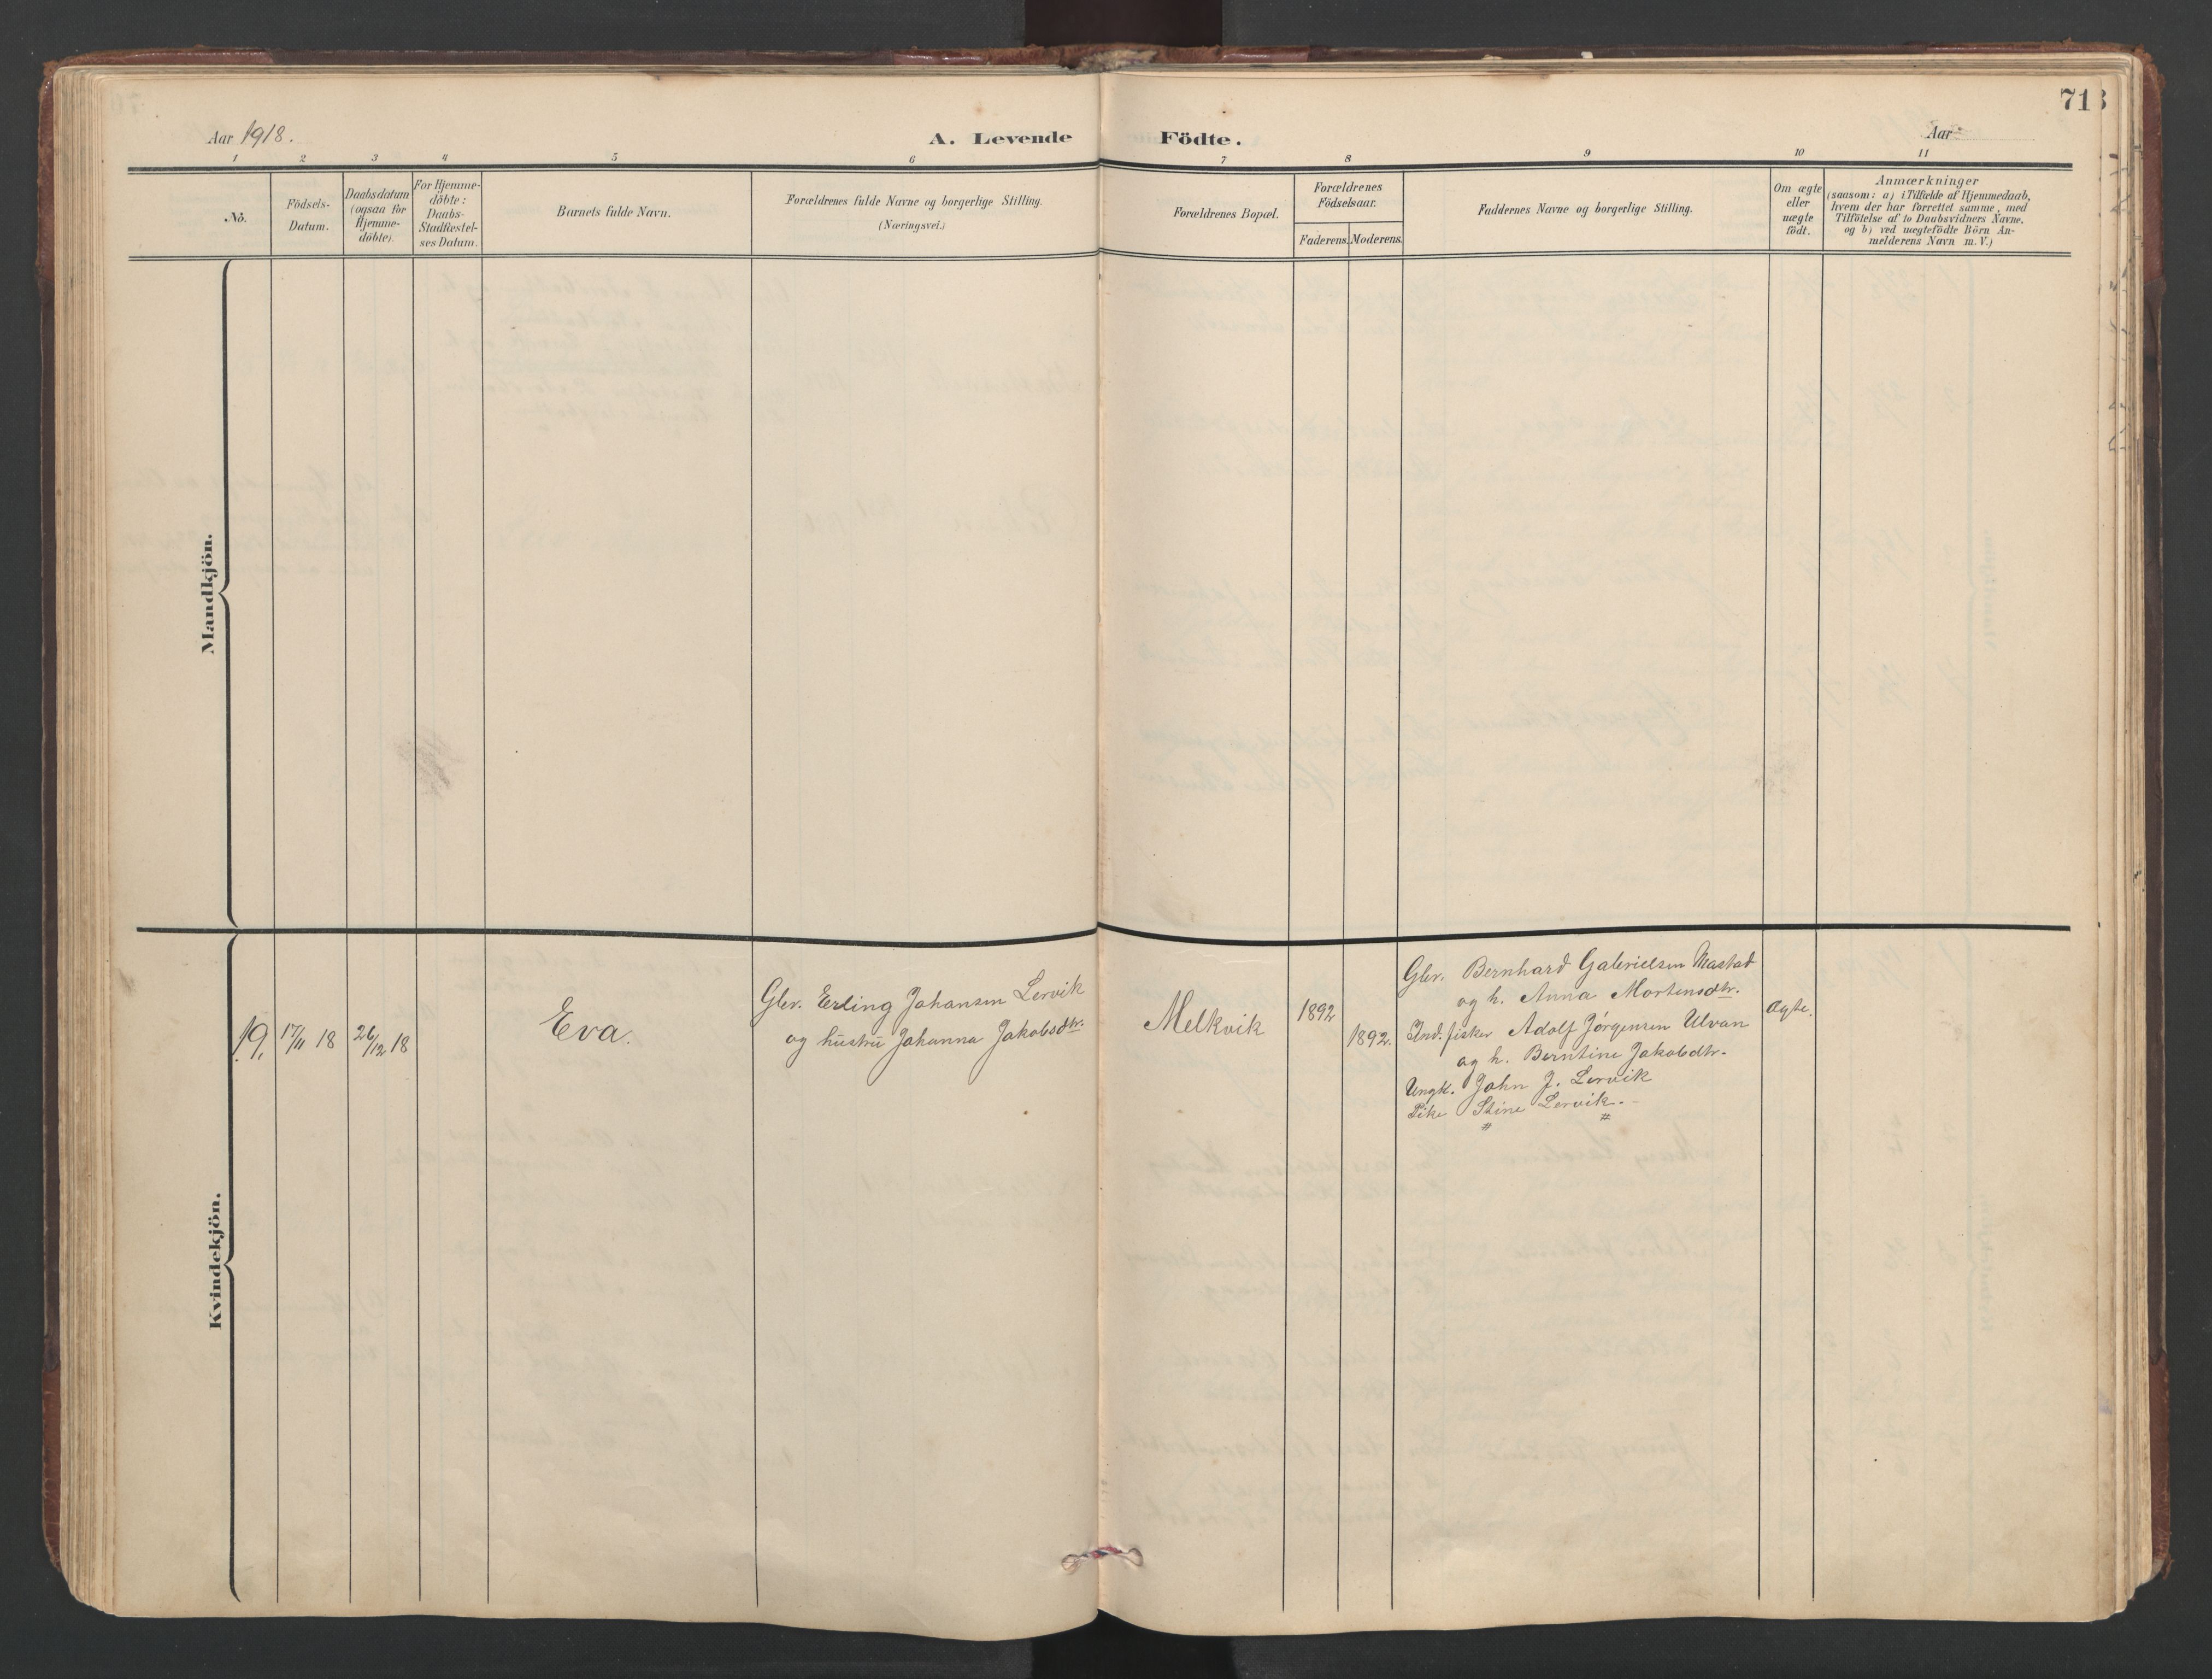 71
Aar 1918.
A. Levende Födte.
Aar
1 2 3 4 5 6 7 8 9 10 11
Nô.
Födsels-
Datum.
Daabsdatum
(ogsaa for
Hjemme-
döbte).
For Hjemme-
döbte:
Daabs-
Stadfæstel-
ses Datum.
Barnets fulde Navn.
Forældrenes fulde Navne og borgerlige Stilling.
(Næringsvei.)
Forældrenes Bopæl.
Forældrenes
Födselsaar.
Faderens. Moderens.
Faddernes Navne og borgerlige Stilling.
Om ægte
eller
uægte
födt.
Anmærkninger
(saasom: a) i Tilfælde af Hjemmedaab,
hvem der har forrettet samme, med
Tilföielse af to Daabsvidners Navne,
og b) ved uægtefödte Börn An-
melderens Navn m. V.)
Mandkjön.
Kvindekjön.
19.
17/11 18
26/12 18
Eva.
Gbr. Erling Johansen Lervik
og hustru Johanna Jakobsdtr.
Melkvik
1892
1892.
Gbr. Bernhard Gabrielsen Mastad
og h. Anna Mortensdtr.
Ind. fisker Adolf Jørgensen Ulvan
og h. Berntine Jakobdtr.
Ungk. John J. Lervik
Pike Stine Lervik.
Ægte.